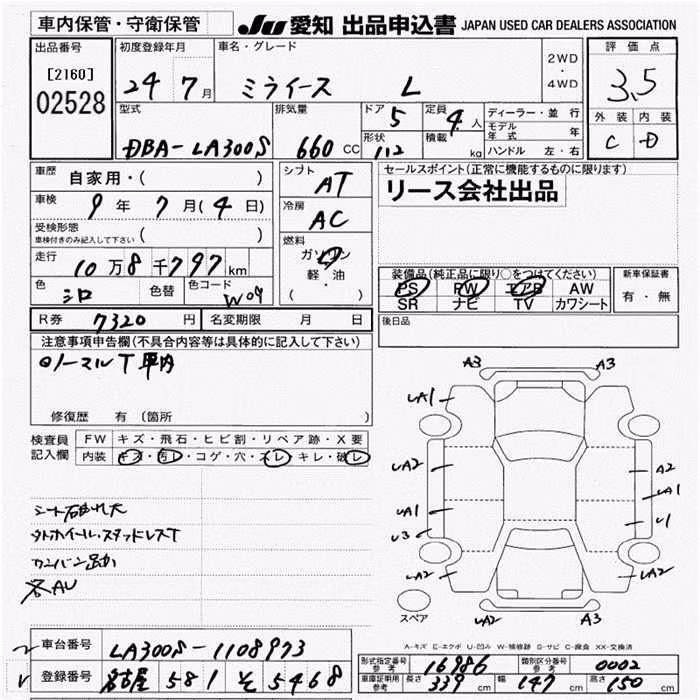 車内保管・守衛保管 JU 愛知 出品申込書 JAPAN USED CAR DEALERS ASSOCIATION
出品番号 初度登録年月 車名・グレード 2WD ・ 4WD 評価点
[2160] 24 7月 ミライース L 3.5
02528
型式 排気量 ドア 5 定員 4人 ディーラー・並行 外装 内装
モデル年式 年
DBA-LA300S 660cc 形状 112 積載 kg ハンドル 左・右 C D
車歴 自家用・( ) シフト AT セールスポイント(正常に機能するものに限ります)
車検 9年7月(4日) 冷房 AC リース会社出品
受検形態 ( )
車検付きのみ記入して下さい
燃料 ガソリン
走行 10万8千797km 軽・油
装備品(純正品に限り○をつけてください) 新車保証書
色 シロ 色替 色コード W09 ( ) PS PW エアB AW 有・無
SR ナビ TV カワシート
R券 7320円 名変期限 月 日 後日品
注意事項申告欄(不具合内容等は具体的に記入して下さい)
ノーマルT車内
修復歴 有(箇所
検査員 FW キズ・飛石・ヒビ割・リペア跡・X要
記入欄 内装 キズ・汚レ・コゲ・穴・スレ・キレ・破レ
A3 A3
UA1
UA2 A2
UA1 UA1
U3 U1
UA2 UA2
UA2 A3
スペア
タトホイール・スタッドレスT
AU
A-キズ E-エクボ U-凹み W-補修跡 S-サビ C-腐食 XX-交換済
車台番号 LA300S-1108973
形式指定番号 参考 16986 類別区分番号 参考 0002
登録番号 名古屋 581 そ 5468
車庫証明用 参考 長さ 339cm 幅 147cm 高さ 150cm